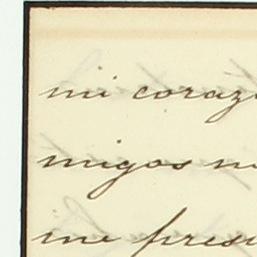 mi coraz
migos m
me presu